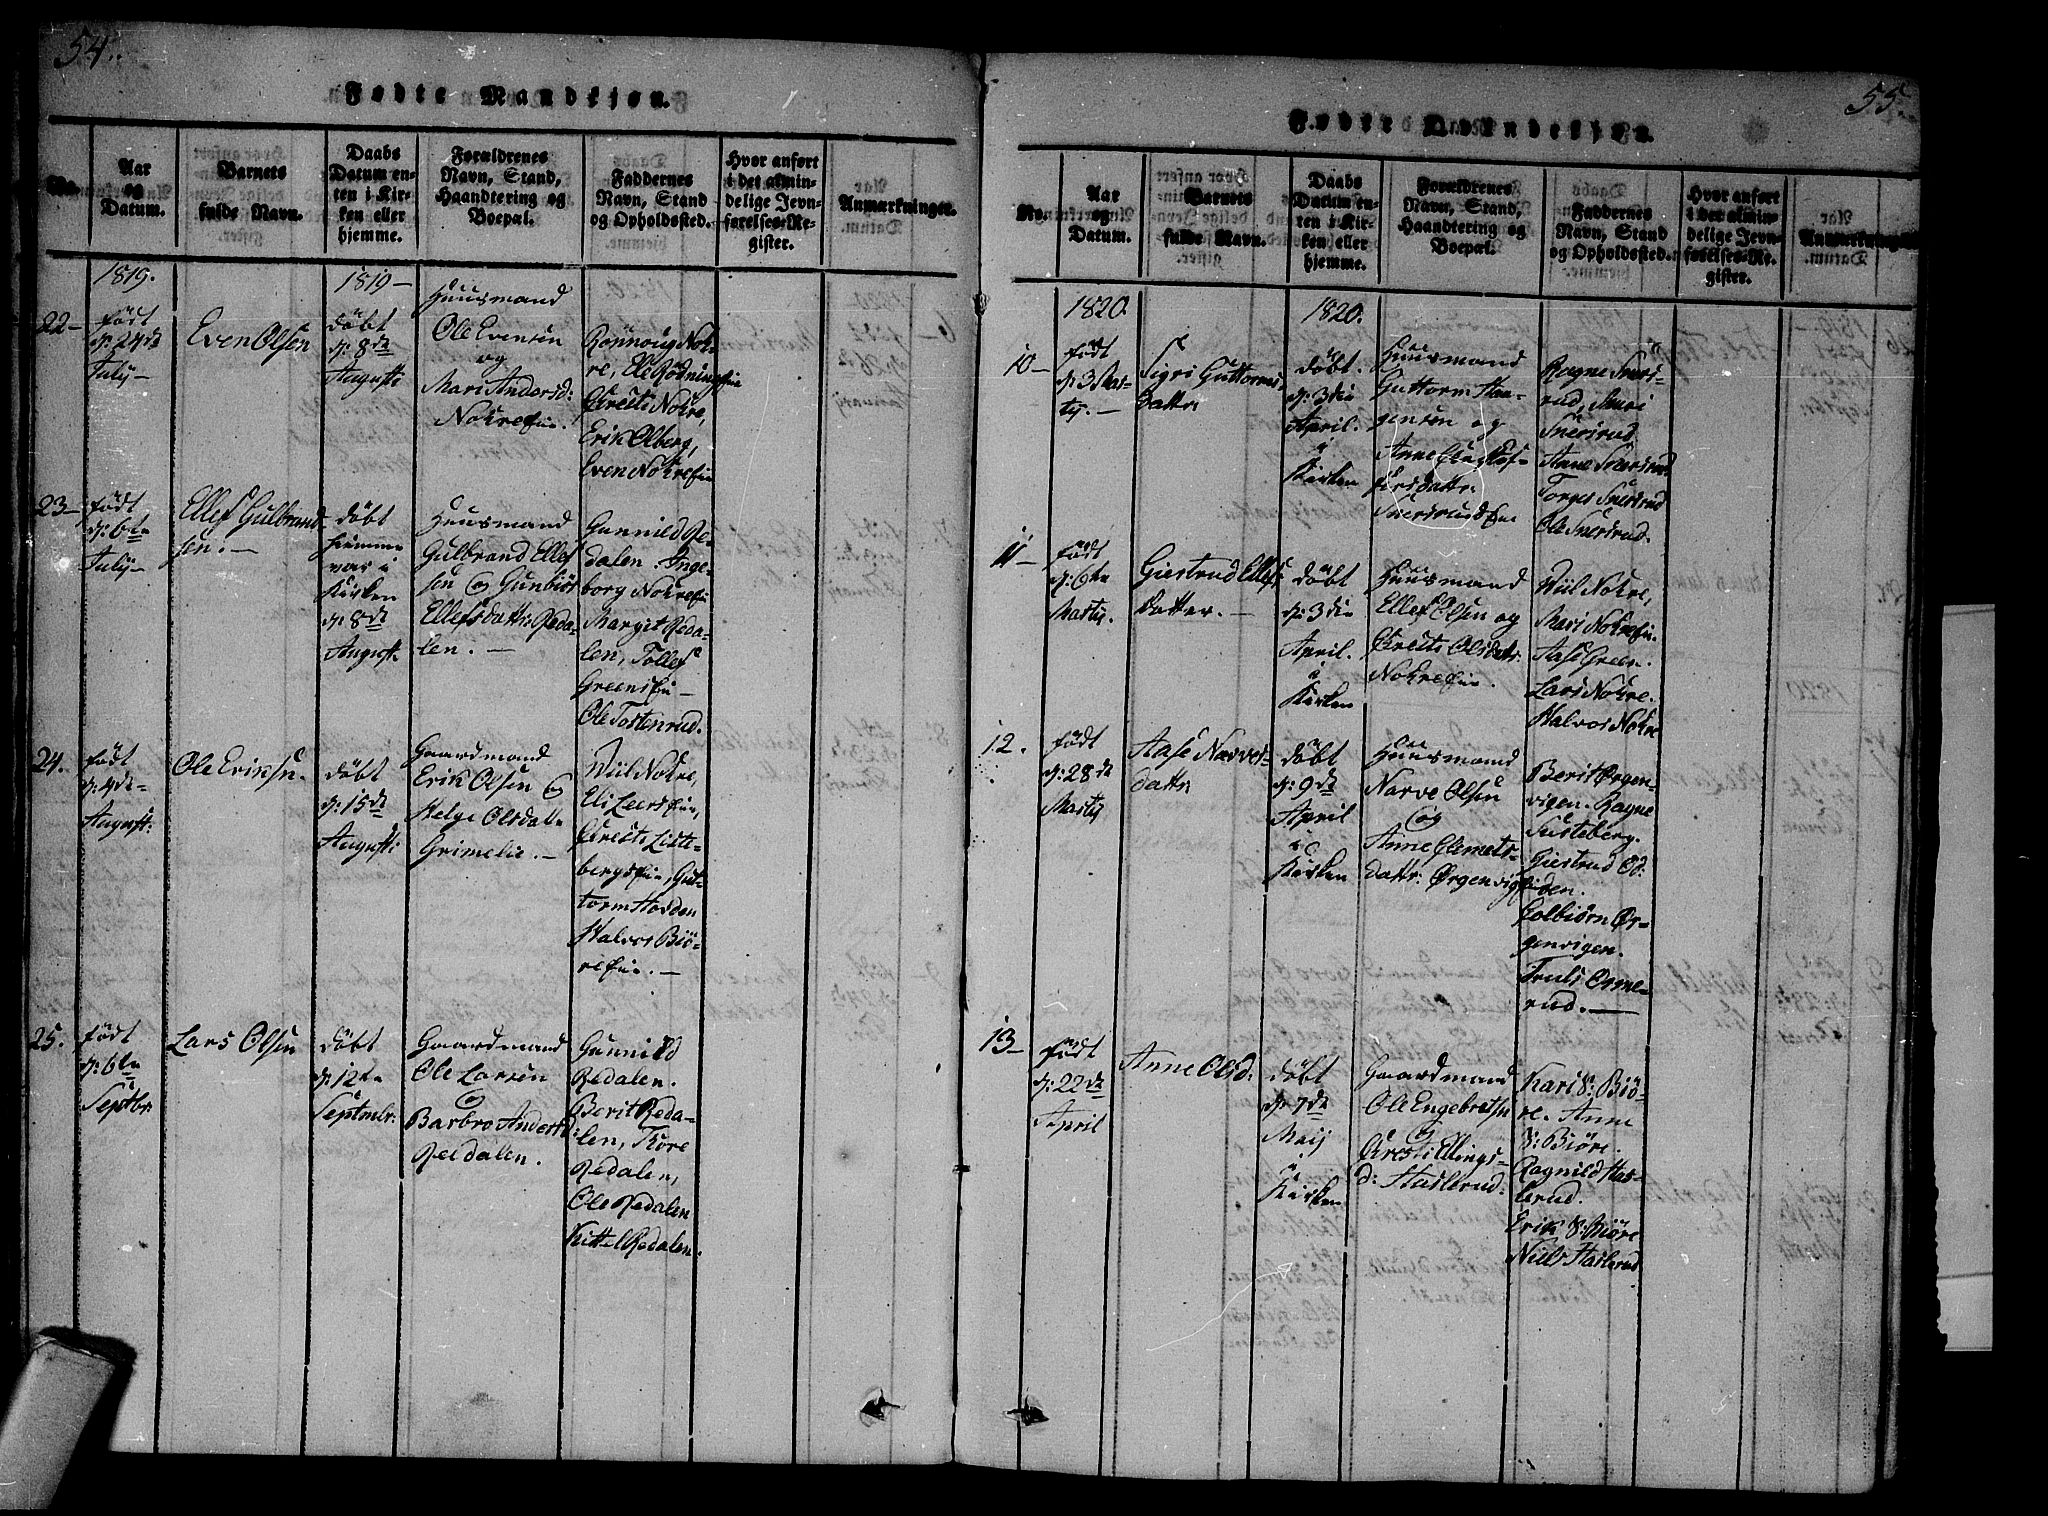 54.
Fødte Mandkjøn.
No.
Aar
og
Datum.
Barnets
fulde Navn.
Daabs
Datum en-
ten i Kir-
ken eller
hjemme.
Forældrenes
Navn, Stand,
Haandtering og
Boepæl.
Faddernes
Navn, Stand
og Opholdssted.
Hvor anført
i det almin-
delige Jevn-
førelses-Re-
gister.
Anmærkninger.
1819.
1819-
22-
født
d: 24de
July-
Even Olsen
döbt
d: 8de
Augusti
Huusmand
Ole Evensen
og
Mari Andersd:
Nokreeie.
Rönnoug Nok-
re, Eli Rødningseie
Kresti Nokre,
Erik Olberg,
Even Nokreeie
23-
født
d: 6te
July-
Ellef Gulbrand-
sen.-
döbt
hiemme
var i
Kirken
d: 8de
August.
Huusmand
Gulbrand Ellef-
sen og Gunbiör
Ellefsdattr: Reda-
len.-
Gunnild Re-
dalen. Inge-
borg Nokreeie
Margit Reda-
len, Tollef
Greenseie-
Ole Tostenrud.
24.
født
d: 4de
August:
Ole Eriksen.
döbt
d: 15de
Augusti
Gaardmand
Erik Olsen og
Helge Olsdatr
Grimelie.-
Wiil Nokre,
Eli Leerseie,
Kresti Liste-
bergseie, Gut-
torm Hovden
Halvor Biö-
reeie.-
25.
født
d: 6te
Septbr:
Lars Olsen
döbt
d: 12te
Septembr:
Gaardmand
Ole Larsen
og
Barbro Andersd:
Reedalen.
Gunnild
Redalen.
Berit Reda-
len, Thore
Redalen,
Ole Redalen
Kittel Redalen.
55.
Fødte Qvindekjøn.
No.
Aar
og
Datum.
Barnets
fulde Navn.
Daabs
Datum en-
ten i Kir-
ken eller
hjemme.
Forældrenes
Navn, Stand,
Haandtering og
Boepæl.
Faddernes
Navn, Stand
og Opholdssted.
Hvor anført
i det almin-
delige Jevn-
førelses-Re-
gister.
Anmærkninger.
1820.
1820.
10-
født
d: 3 Mar-
tij.-
Sigri Guttorms-
dattr
döbt
d: 3die
April.
i
Kirken
Huusmand
Guttorm Haa-
gensen og
Anne Christof-
fersdattr:
Snersrudeie
Ragne Sners-
rud, Smeri
Snersrud
Anne Snersrud
Torger Snersrud
Ole Snersrud.
11-
født
d: 6te
Martij.
Giertrud Ellefs-
datter.-
döbt
d: 3die
April.
i
Kirken
Huusmand
Ellef Olsen og
Kresti Olsdatr:
Nokreeie.
Wiil Nokre,
Mari Nokreeie.
Aase Green.
Lars Nokre.
Halvor Nokre
12.
født
d: 28de
Martij
Aase Narves-
dattr
döbt
d: 9de
April
i
Kirken
Huusmand
Narve Olsen
og
Anne Clemets-
dattr: Ørgenvigeie
Berit Ørgen-
vigen. Ragne
Susteberg.
Giertrud Ød:
den.
Kolbiörn Ør-
genvigen.
Truls Opne-
rud.-
13-
født
d: 22de
April
Anne Olsd:
döbt
d: 7de
Maij
i
Kirken
Gaardmand
Ole Engebretsen
og
Kresti Ellings-
d: Haslerud:
Kari S: Biö-
re. Anne
S: Biöre.
Ragnild Has-
lerud.
Erik S: Biöre
Niels Haslerud